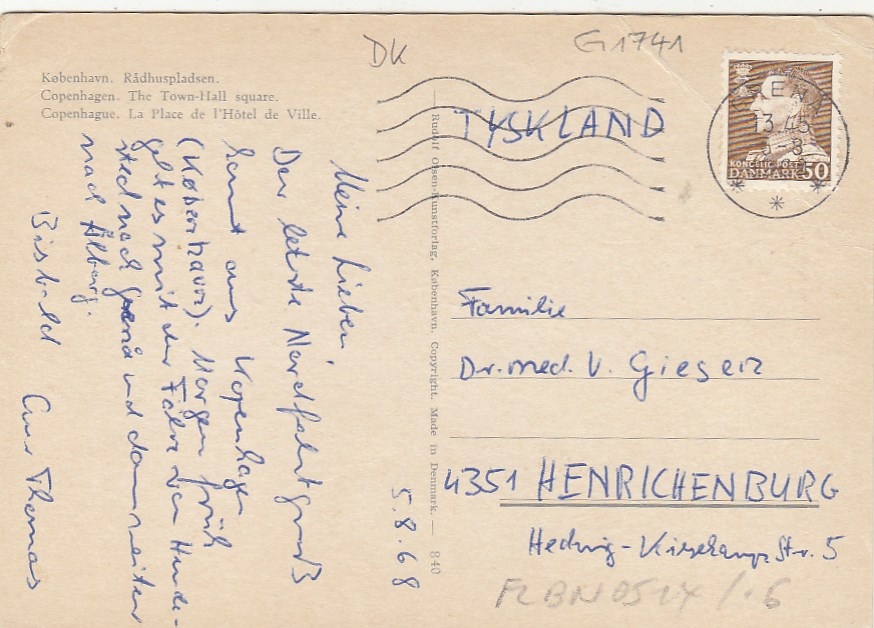 DK
G1741
København. Rådhuspladsen.
Copenhagen. The Town-Hall square.
Copenhague. La Place de l'Hôtel de Ville.
Meine Lieben,
Der letzte Nordfahrtgruß
kommt aus Kopenhagen
(København). Morgen früh
geht es mit der Fähre von Hunde-
sted nach Grenå und dann weiter
nach Ålborg.
Bis bald Euer Thomas
5.8.68
— Rudolf Olsen-Kunstforlag, København. Copyright. Made in Denmark. — 840
13.45
KONGELIG POST
DANMARK 50
TYSKLAND
Familie
Dr. med. V. Gieserz
4351 HENRICHENBURG
Hedwig-Kiesekamp Str. 5